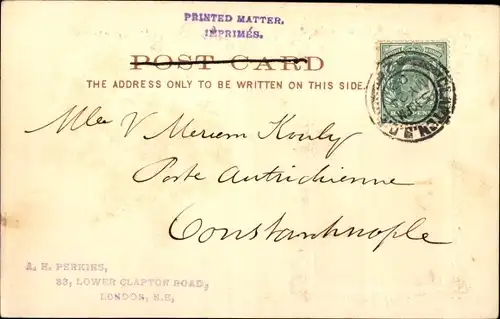 PRINTED MATTER.
IMPRIMÉS.
POST CARD
THE ADDRESS ONLY TO BE WRITTEN ON THIS SIDE.
Mlle V Meriem Kouly
Poste Autrichienne
Constantinople
A. H. PERKINS,
33, LOWER CLAPTON ROAD,
LONDON, N.E,